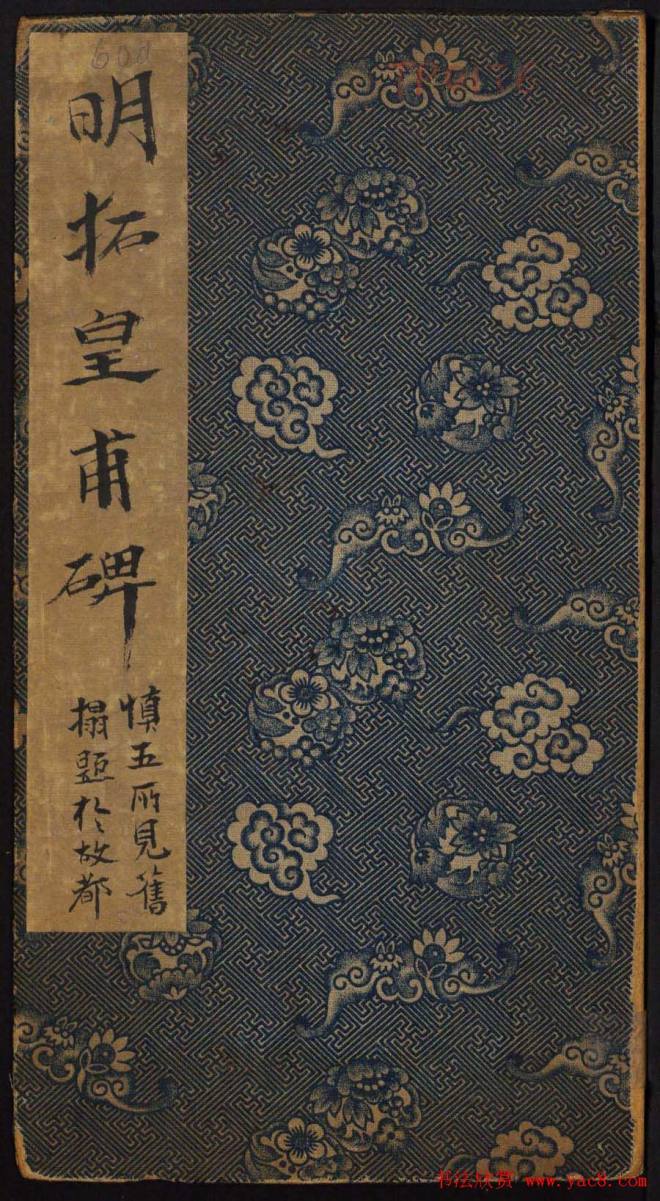 明拓皇甫碑
慎五所見舊
搨題於故都
书法欣赏 www.yac8.com